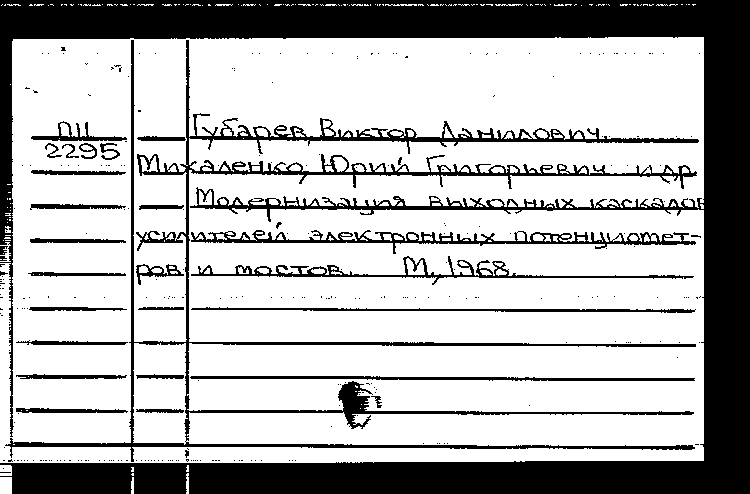 П11
2295
Губарев, Виктор Данилович.
Михаленко, Юрий Григорьевич и др
Модернизация выходных каскадов
усилителей электронных потенциомет-
ров и мостов. М., 1968.